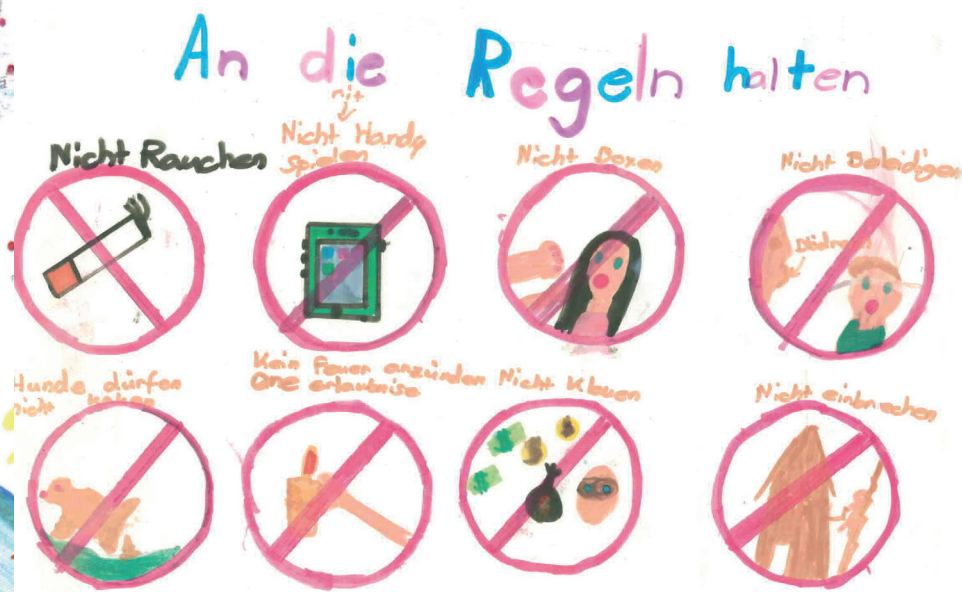 An die Regeln halten
Nicht Rauchen
mit
Nicht Handy
spielen
Nicht Boxen
Nicht Beleidigen
Hunde dürfen
nicht
Kein Feuer anzünden
One erlaubnise
Nicht Klauen
Nicht einbrechen